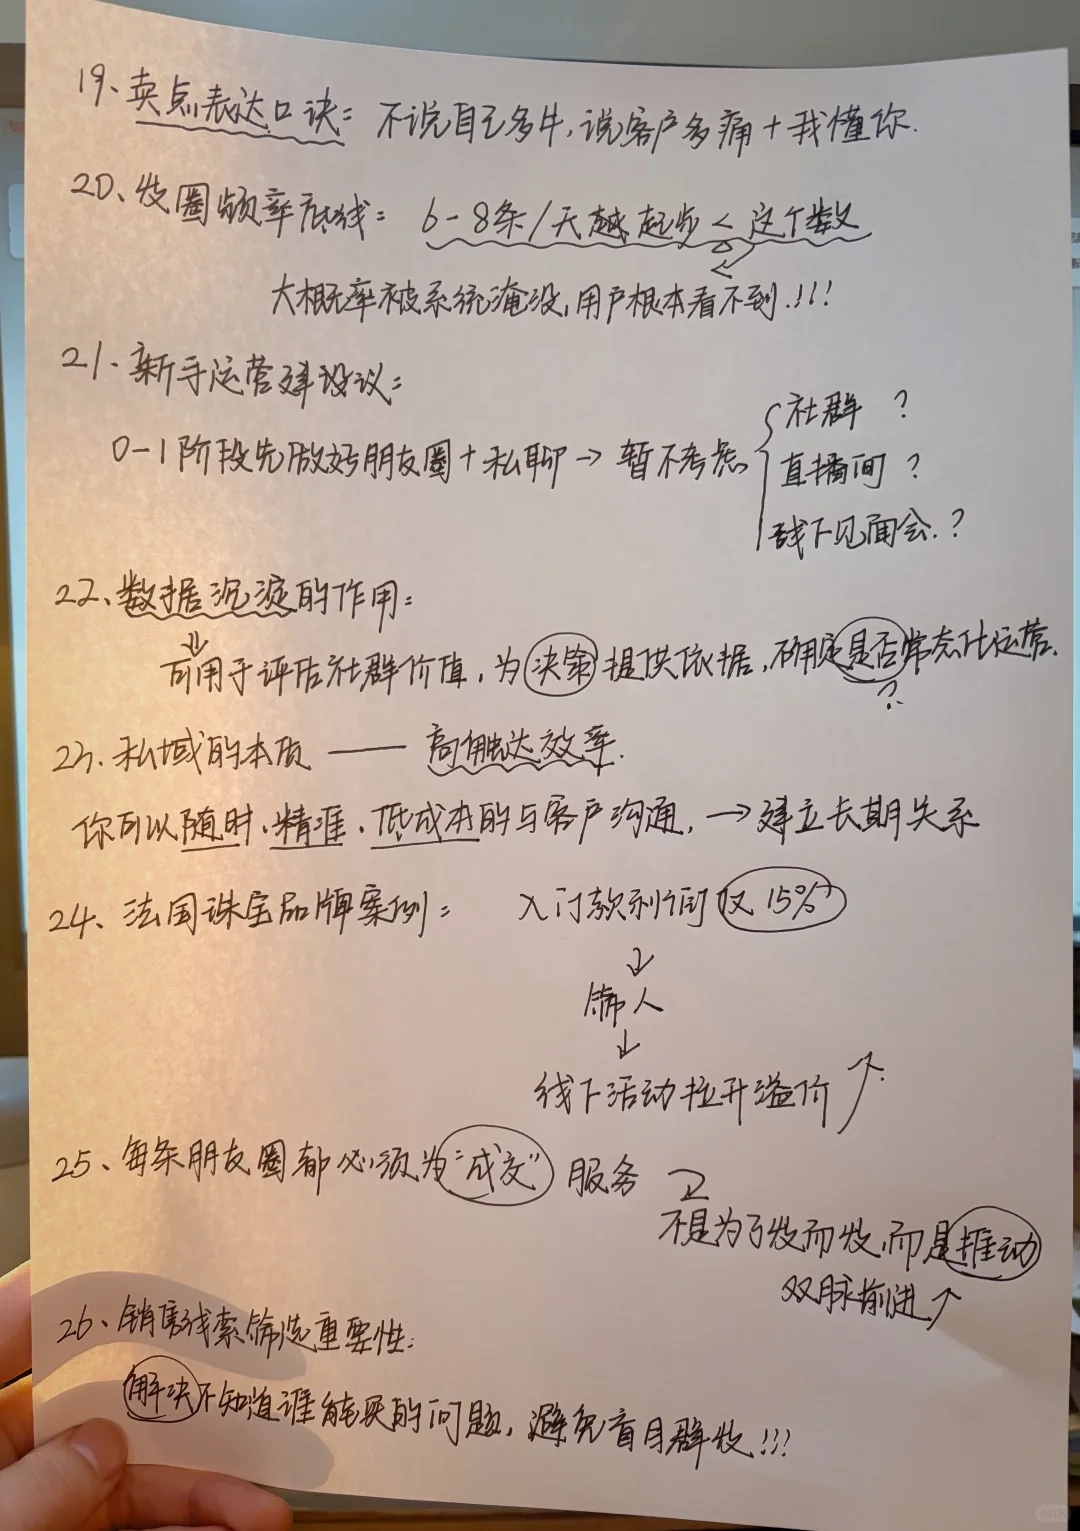 19、卖点表达口诀：不说自己多牛，说客户多痛＋我懂你.
20、发圈频率底线：6-8条/天越起步＜这个数
大概率被系统淹没，用户根本看不到.!!!
21.新手运营建设议：
0-1阶段先做好朋友圈＋私聊→暂不考虑
社群？
直播间？
线下见面会.？
22、数据沉淀的作用：
可用于评估社群价值，为决策提供依据，确定是否常态化运营.
?
23.私域的本质——高触达效率.
你可以随时、精准、低成本的与客户沟通，→建立长期关系
24、法国珠宝品牌案例：入门款利润仅15%
↓
筛人
↓
线下活动拉升溢价↗
25、每条朋友圈都必须为"成交"服务
不是为了发而发，而是推动
双脉前进↗
26、销售线索筛选重要性：
解决不知道谁能买的问题，避免盲目群发!!!